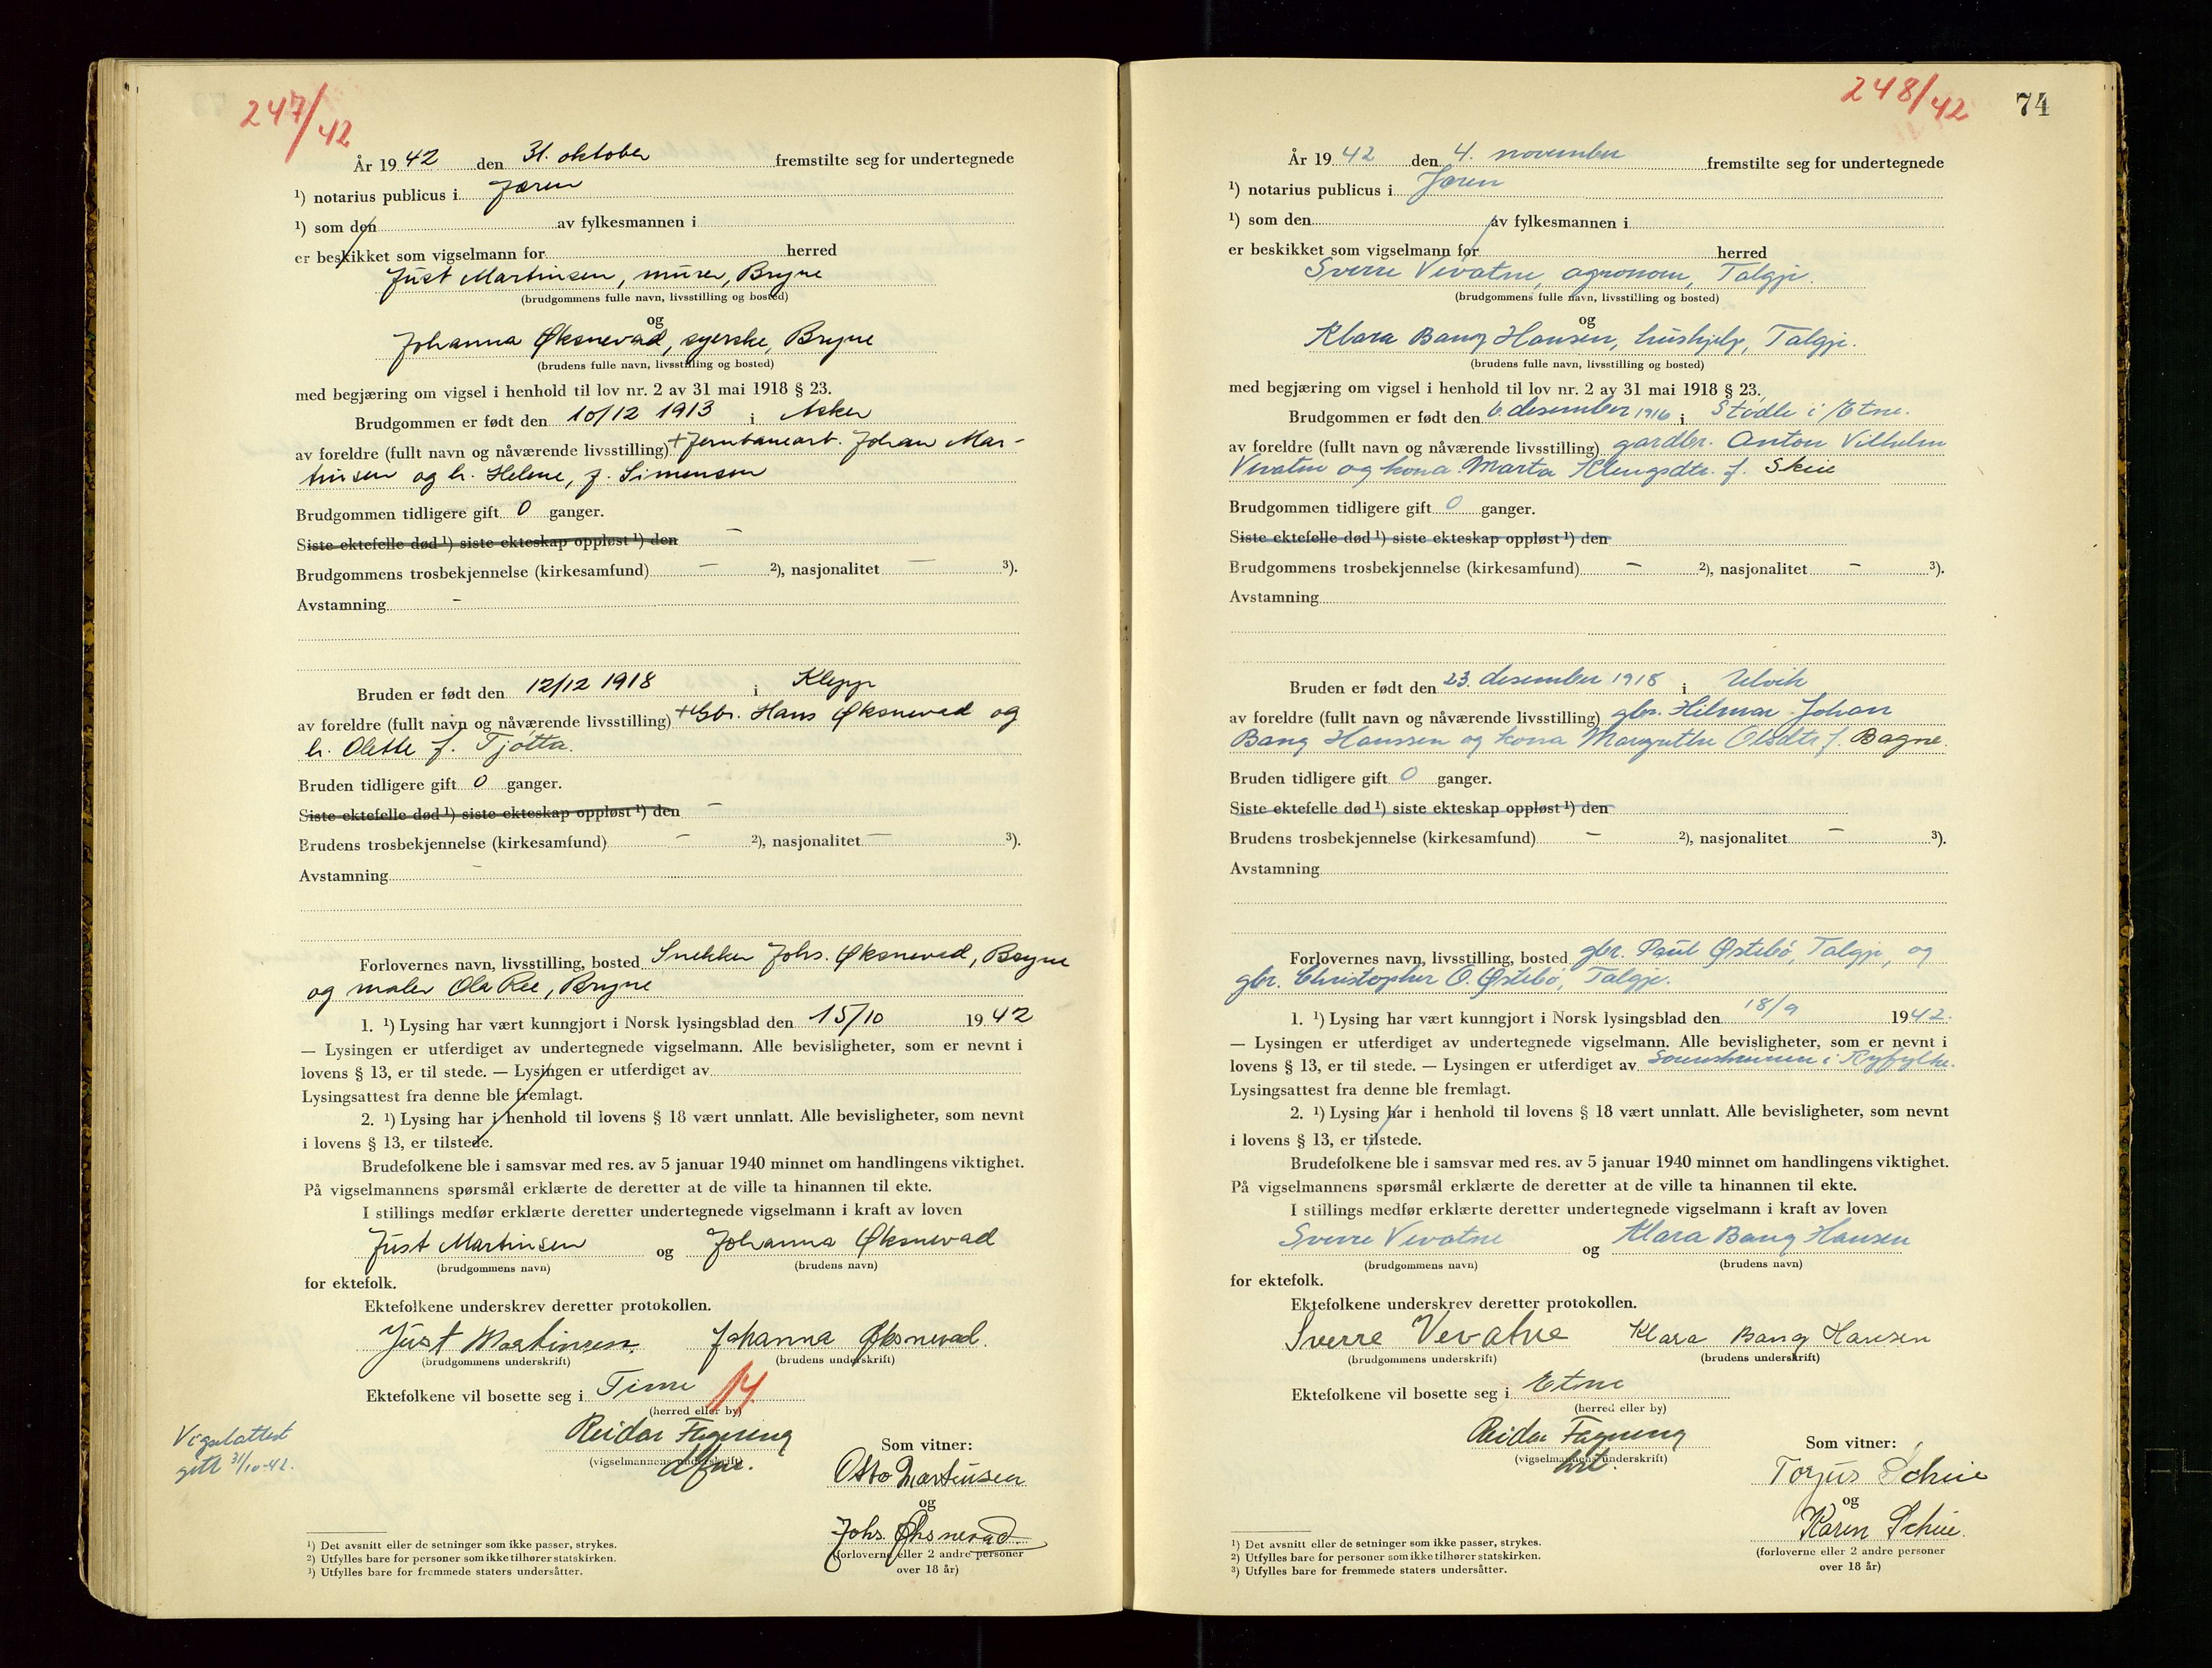 247/42
År 1942 den 31. oktober fremstilte seg for undertegnede
¹) notarius publicus i Jæren
¹) som den av fylkesmannen i
er beskikket som vigselmann for herred
Just Martinsen, murer, Bryne
(brudgommens fulle navn, livsstilling og bosted)
og
Johanna Øksnevad, syerske, Bryne
(brudens fulle navn, livsstilling og bosted)
med begjæring om vigsel i henhold til lov nr. 2 av 31 mai 1918 § 23.
Brudgommen er født den 10/12 1913 i Asker
av foreldre (fullt navn og nåværende livsstilling) + Jernbanearb. Johan Mar-
tinsen og h. Helene, f. Simensen
Brudgommen tidligere gift 0 ganger.
Siste ektefelle død ¹) siste ekteskap oppløst ¹) den –
Brudgommens trosbekjennelse (kirkesamfund) – ²), nasjonalitet – ³).
Avstamning –
Bruden er født den 12/12 1918 i Klepp
av foreldre (fullt navn og nåværende livsstilling) + Gbr. Hans Øksnevad og
h. Olette f. Tjøtta.
Bruden tidligere gift 0 ganger.
Siste ektefelle død ¹) siste ekteskap oppløst ¹) den –
Brudens trosbekjennelse (kirkesamfund) – ²), nasjonalitet – ³).
Avstamning –
Forlovernes navn, livsstilling, bosted Snekker Johs. Øksnevad, Bryne
og maler Ola Ree, Bryne
1. ¹) Lysing har vært kunngjort i Norsk lysingsblad den 15/10 1942
— Lysingen er utferdiget av undertegnede vigselmann. Alle bevisligheter, som er nevnt i
lovens § 13, er til stede. — Lysingen er utferdiget av
Lysingsattest fra denne ble fremlagt.
2. ¹) Lysing har i henhold til lovens § 18 vært unnlatt. Alle bevisligheter, som nevnt
i lovens § 13, er tilstede.
Brudefolkene ble i samsvar med res. av 5 januar 1940 minnet om handlingens viktighet.
På vigselmannens spørsmål erklærte de deretter at de ville ta hinannen til ekte.
I stillings medfør erklærte deretter undertegnede vigselmann i kraft av loven
Just Martinsen og Johanna Øksnevad
(brudgommens navn) (brudens navn)
for ektefolk.
Ektefolkene underskrev deretter protokollen.
Just Martinsen. Johanna Øksnevad.
(brudgommens underskrift) (brudens underskrift)
Ektefolkene vil bosette seg i Time 14
(herred eller by)
Vigselattest
gitt 31/10-42.
Reidar Fagneng
(vigselmannens underskrift)
dfm.
Som vitner:
Otto Martinsen
og
Johs. Øksnevad.
(forloverne eller 2 andre personer
over 18 år)
¹) Det avsnitt eller de setninger som ikke passer, strykes.
²) Utfylles bare for personer som ikke tilhører statskirken.
³) Utfylles bare for fremmede staters undersåtter.
248/42
74
År 1942 den 4. november fremstilte seg for undertegnede
¹) notarius publicus i Jæren
¹) som den av fylkesmannen i
er beskikket som vigselmann for herred
Sverre Vevatne, agronom, Talgje.
(brudgommens fulle navn, livsstilling og bosted)
og
Klara Bang Hansen, hushjelp, Talgje.
(brudens fulle navn, livsstilling og bosted)
med begjæring om vigsel i henhold til lov nr. 2 av 31 mai 1918 § 23.
Brudgommen er født den 6. desember 1916 i Stødle i Etne.
av foreldre (fullt navn og nåværende livsstilling) gardbr. Anton Vilhelm
Vevatne og kona Marta Klengsdtr. f. Skeie
Brudgommen tidligere gift 0 ganger.
Siste ektefelle død ¹) siste ekteskap oppløst ¹) den
Brudgommens trosbekjennelse (kirkesamfund) – ²), nasjonalitet – ³).
Avstamning
Bruden er født den 23. desember 1918 i Ulvik
av foreldre (fullt navn og nåværende livsstilling) gbr. Hilmar Johan
Bang Hanssen og kona Margrethe Olsdtr f. Bagne.
Bruden tidligere gift 0 ganger.
Siste ektefelle død ¹) siste ekteskap oppløst ¹) den
Brudens trosbekjennelse (kirkesamfund) – ²), nasjonalitet – ³).
Avstamning
Forlovernes navn, livsstilling, bosted gbr. Paul Østebø, Talgje, og
gbr. Christopher O. Østebø, Talgje.
1. ¹) Lysing har vært kunngjort i Norsk lysingsblad den 18/9 1942.
— Lysingen er utferdiget av undertegnede vigselmann. Alle bevisligheter, som er nevnt i
lovens § 13, er til stede. — Lysingen er utferdiget av Sorenskriveren i Ryfylke.
Lysingsattest fra denne ble fremlagt.
2. ¹) Lysing har i henhold til lovens § 18 vært unnlatt. Alle bevisligheter, som nevnt
i lovens § 13, er tilstede.
Brudefolkene ble i samsvar med res. av 5 januar 1940 minnet om handlingens viktighet.
På vigselmannens spørsmål erklærte de deretter at de ville ta hinannen til ekte.
I stillings medfør erklærte deretter undertegnede vigselmann i kraft av loven
Sverre Vevatne og Klara Bang Hansen
(brudgommens navn) (brudens navn)
for ektefolk.
Ektefolkene underskrev deretter protokollen.
Sverre Vevatne Klara Bang Hansen
(brudgommens underskrift) (brudens underskrift)
Ektefolkene vil bosette seg i Etne
(herred eller by)
Reidar Fagneng
(vigselmannens underskrift)
Som vitner:
Torjus Scheie
og
Karen Scheie.
(forloverne eller 2 andre personer
over 18 år)
¹) Det avsnitt eller de setninger som ikke passer, strykes.
²) Utfylles bare for personer som ikke tilhører statskirken.
³) Utfylles bare for fremmede staters undersåtter.